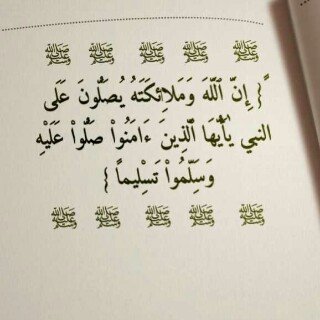 ﷺ ﷺ ﷺ ﷺ ﷺ
{ إِنَّ ٱللَّهَ وَمَلَائِكَتَهُ يُصَلُّونَ عَلَى
النبي يَٰأَيُّهَا ٱلَّذِينَ ءَامَنُوا۟ صَلُّوا۟ عَلَيْهِ
وَسَلِّمُوا۟ تَسْلِيماً }
ﷺ ﷺ ﷺ ﷺ ﷺ